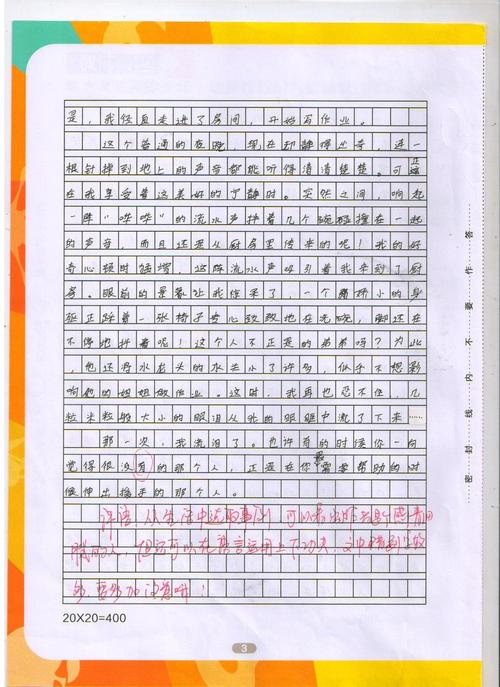 是，我径直走进了房间，开始写作业。
这个普通的夜晚，现在却静得出奇，连一
根针掉到地上的声音都能听得清清楚楚。可正当
在我享受着这美好的宁静时。突然之间，响起
一阵“哗哗”的流水声拌着几个碗碰撞在一起
的声音，而且还是从厨房里传来的呢！我的好
奇心顿时倍增，这阵流水声吸引着我来到了厨
房。眼前的景象让我惊呆了，一个矮小的身
驱正踩着一张椅子专心致致地在洗碗，脚还在
不停地抖着呢！这个人不正是的弟弟吗？为此
，他还将水龙头的水关小了许多，似乎不想影
响他的姐姐做作业。这时，我再也忍不住，几
粒米粒般大小的眼泪从我的眼眶中流了下来……
那一次，我流泪了。也许有的时候你一向
觉得很没用的那个人，正是在你最需要帮助的时
候伸出援手的那个人。
评语：从生活中选取事例，可以看出你是个感情
的人，但还可以在语言运用上下功夫，文中错别字较
多，要多加注意哦！
20X20=400
3
密封线内不要作答